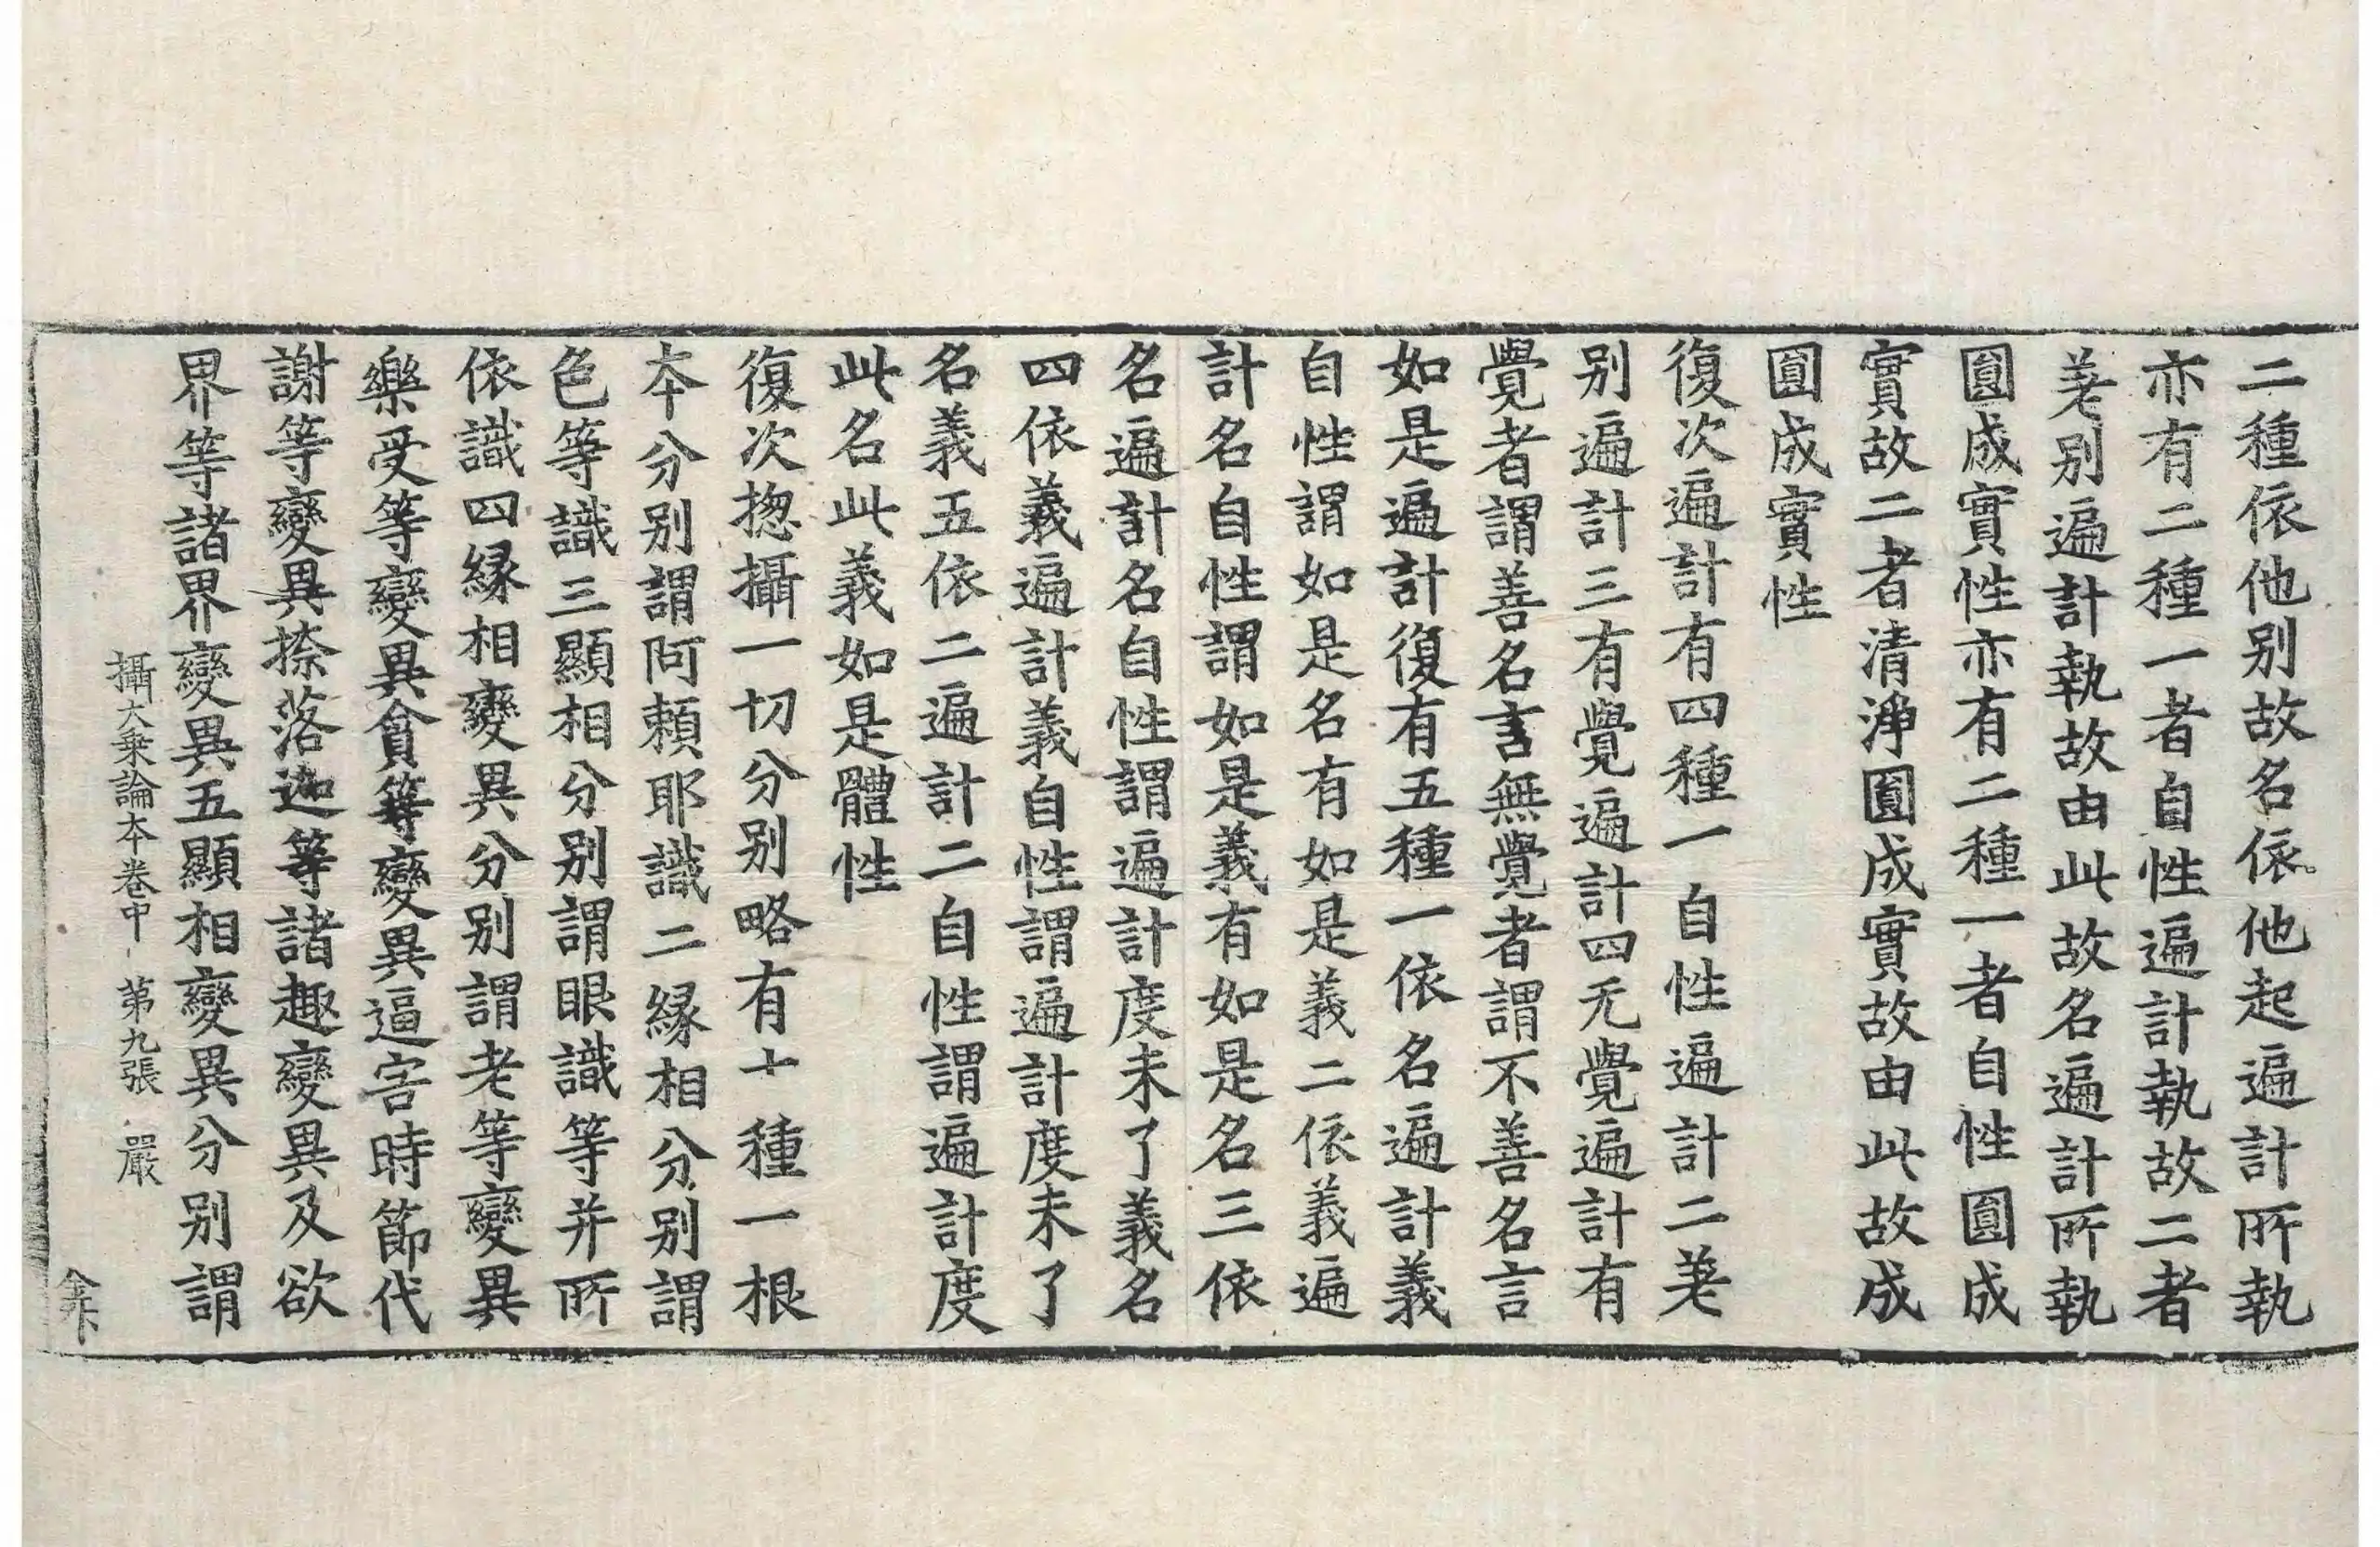 二種依他別故名依他起遍計所執
亦有二種一者自性遍計執故二者
差别遍計執故由此故名遍計所執
圓成實性亦有二種一者自性圓成
實故二者清淨圓成實故由此故成
圓成實性
復次遍計有四種一自性遍計二差
别遍計三有覺遍計四无覺遍計有
覺者謂善名言無覺者謂不善名言
如是遍計復有五種一依名遍計義
自性謂如是名有如是義二依義遍
計名自性謂如是義有如是名三依
名遍計名自性謂遍計度未了義名
四依義遍計義自性謂遍計度未了
名義五依二遍計二自性謂遍計度
此名此義如是體性
復次揔攝一切分别略有十種一根
本分别謂阿頼耶識二縁相分别謂
色等識三顯相分别謂眼識等并所
依識四縁相變異分别謂老等變異
樂受等變異貪等變異逼害時節代
謝等變異捺落迦等諸趣變異及欲
界等諸界變異五顯相變異分别謂
攝大乗論本卷中 第九張 嚴